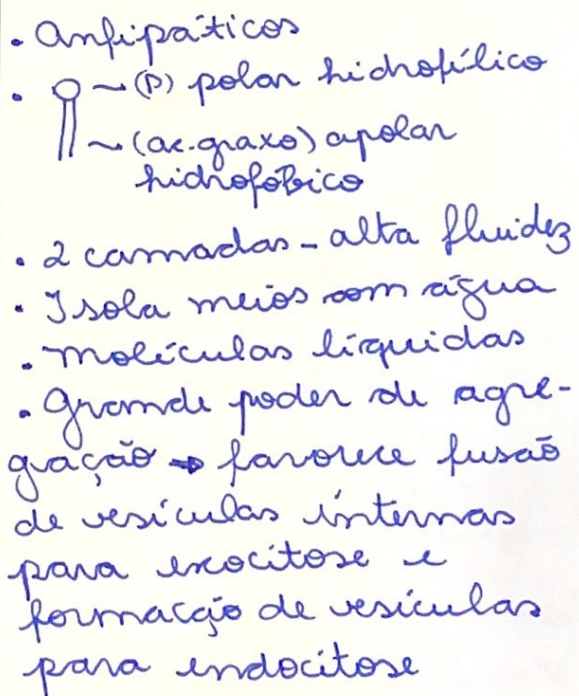 • Anfipáticos
• ~ (P) polar hidrofílico
~ (ac. graxo) apolar
hidrofóbico
• 2 camadas - alta fluidez
• Isola meios com água
• Moléculas líquidas
• Grande poder de agre-
gração → favorece fusão
de vesículas internas
para exocitose e
formacção de vesículas
para endocitose